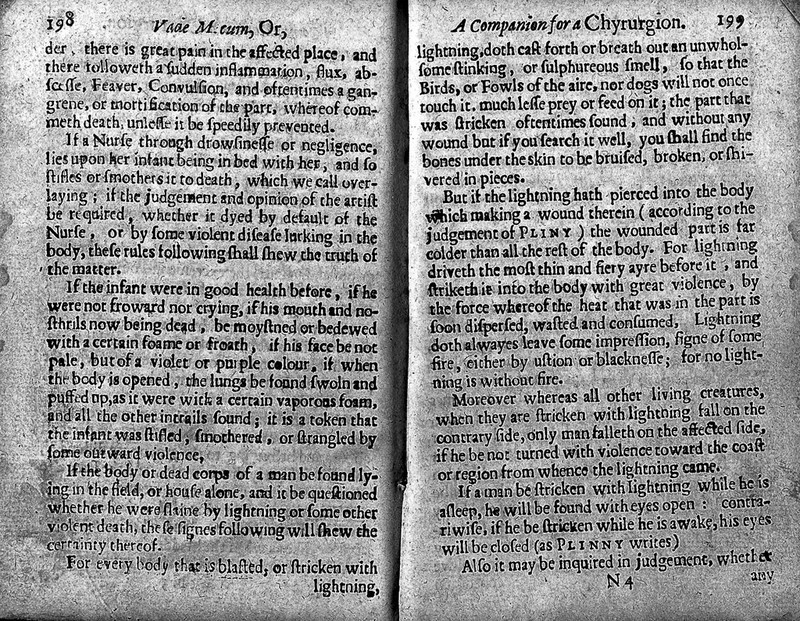 198 Vade Mecum, Or,
der, there is great pain in the affected place, and
there followeth a sudden inflammation, flux, ab-
scesse, Feaver, Convulsion, and oftentimes a gan-
grene, or mortification of the part, whereof com-
meth death, unlesse it be speedily prevented.
If a Nurse through drowsinesse or negligence,
lies upon her infant being in bed with her, and so
stifles or smothers it to death, which we call over-
laying; if the judgement and opinion of the artist
be required, whether it dyed by default of the
Nurse, or by some violent disease lurking in the
body, these rules following shall shew the truth of
the matter.
If the infant were in good health before, if he
were not froward nor crying, if his mouth and no-
sthrils now being dead, be moystned or bedewed
with a certain foame or froath, if his face be not
pale, but of a violet or purple colour, if when
the body is opened, the lungs be found swoln and
puffed up, as it were with a certain vaporous foam,
and all the other intrails sound; it is a token that
the infant was stifled, smothered, or strangled by
some outward violence,
If the body or dead corps of a man be found ly-
ing in the field, or house alone, and it be questioned
whether he were slaine by lightning or some other
violent death, these signes following will shew the
certainty thereof.
For every body that is blasted, or stricken with
lightning,
A Companion for a Chyrurgion. 199
lightning, doth cast forth or breath out an unwhol-
some stinking, or sulphureous smell, so that the
Birds, or Fowls of the aire, nor dogs will not once
touch it. much lesse prey or feed on it; the part that
was stricken oftentimes sound, and without any
wound but if you search it well, you shall find the
bones under the skin to be bruised, broken, or shi-
vered in pieces.
But if the lightning hath pierced into the body
which making a wound therein (according to the
judgement of PLINY) the wounded part is far
colder than all the rest of the body. For lightning
driveth the most thin and fiery ayre before it, and
striketh it into the body with great violence, by
the force whereof the heat that was in the part is
soon dispersed, wasted and consumed, Lightning
doth alwayes leave some impression, signe of some
fire, either by ustion or blacknesse; for no light-
ning is without fire.
Moreover whereas all other living creatures,
when they are stricken with lightning fall on the
contrary side, only man falleth on the affected side,
if he be not turned with violence toward the coast
or region from whence the lightning came.
If a man be stricken with lightning while he is
asleep, he will be found with eyes open: contra-
riwise, if he be stricken while he is awake, his eyes
will be closed (as PLINNY writes)
Also it may be inquired in judgement, whether
N 4 any